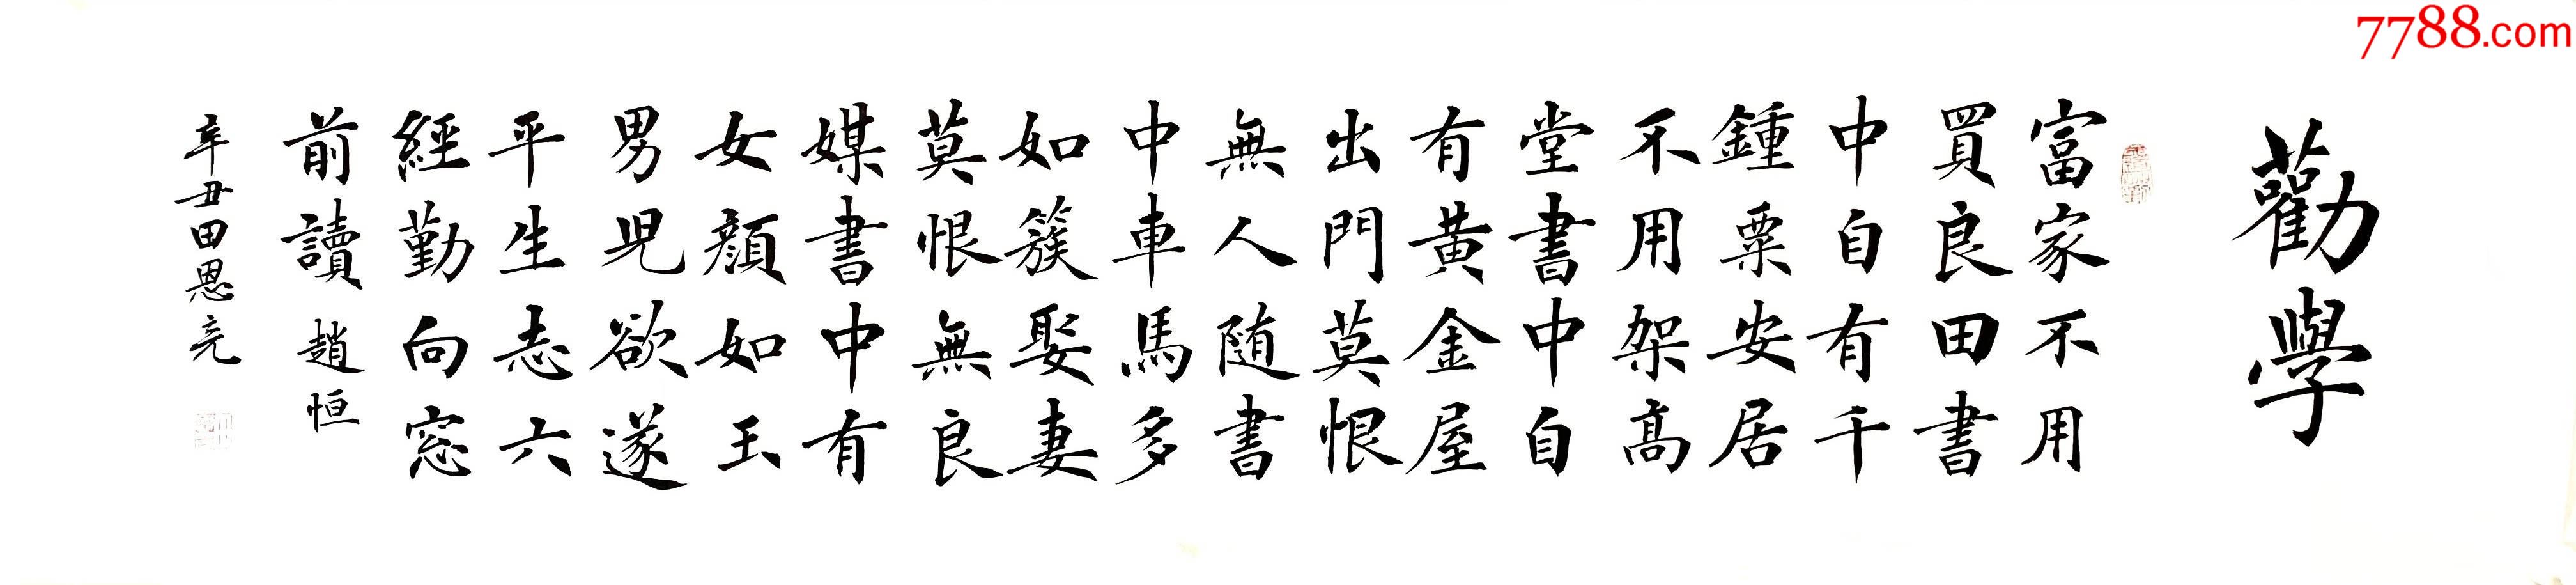 勸學
富家不用
買良田書
中自有千
鍾粟安居
不用架高
堂書中自
有黃金屋
出門莫恨
無人随書
中車馬多
如簇娶妻
莫恨無良
媒書中有
女顏如玉
男児欲遂
平生志六
經勤向窓
前讀 趙恒
辛丑田恩亮
7788.com